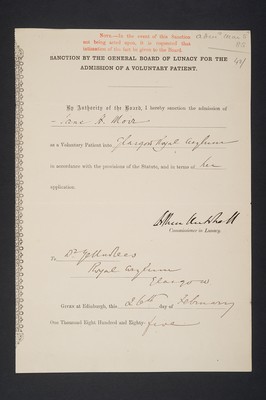 Note.—In the event of this Sanction
not being acted upon, it is requested that
intimation of the fact be given to the Board.
SANCTION BY THE GENERAL BOARD OF LUNACY FOR THE
ADMISSION OF A VOLUNTARY PATIENT.
By Authority of the Board, I hereby sanction the admission of
Jane A. Moir
as a Voluntary Patient into Glasgow Royal Asylum
in accordance with the provisions of the Statute, and in terms of her
application.
Arthur Mitchell
Commissioner in Lunacy.
To Dr Yellowlees
Royal Asylum
Glasgow
Given at Edinburgh, this 26th day of February
One Thousand Eight Hundred and Eighty-five